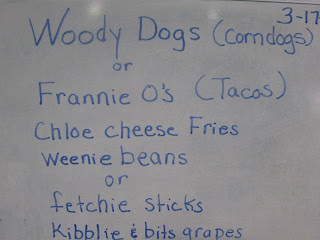 3-17
Woody Dogs (Corndogs)
or
Frannie O's (Tacos)
Chloe cheese Fries
Weenie beans
or
fetchie sticks
Kibblie & bits grapes